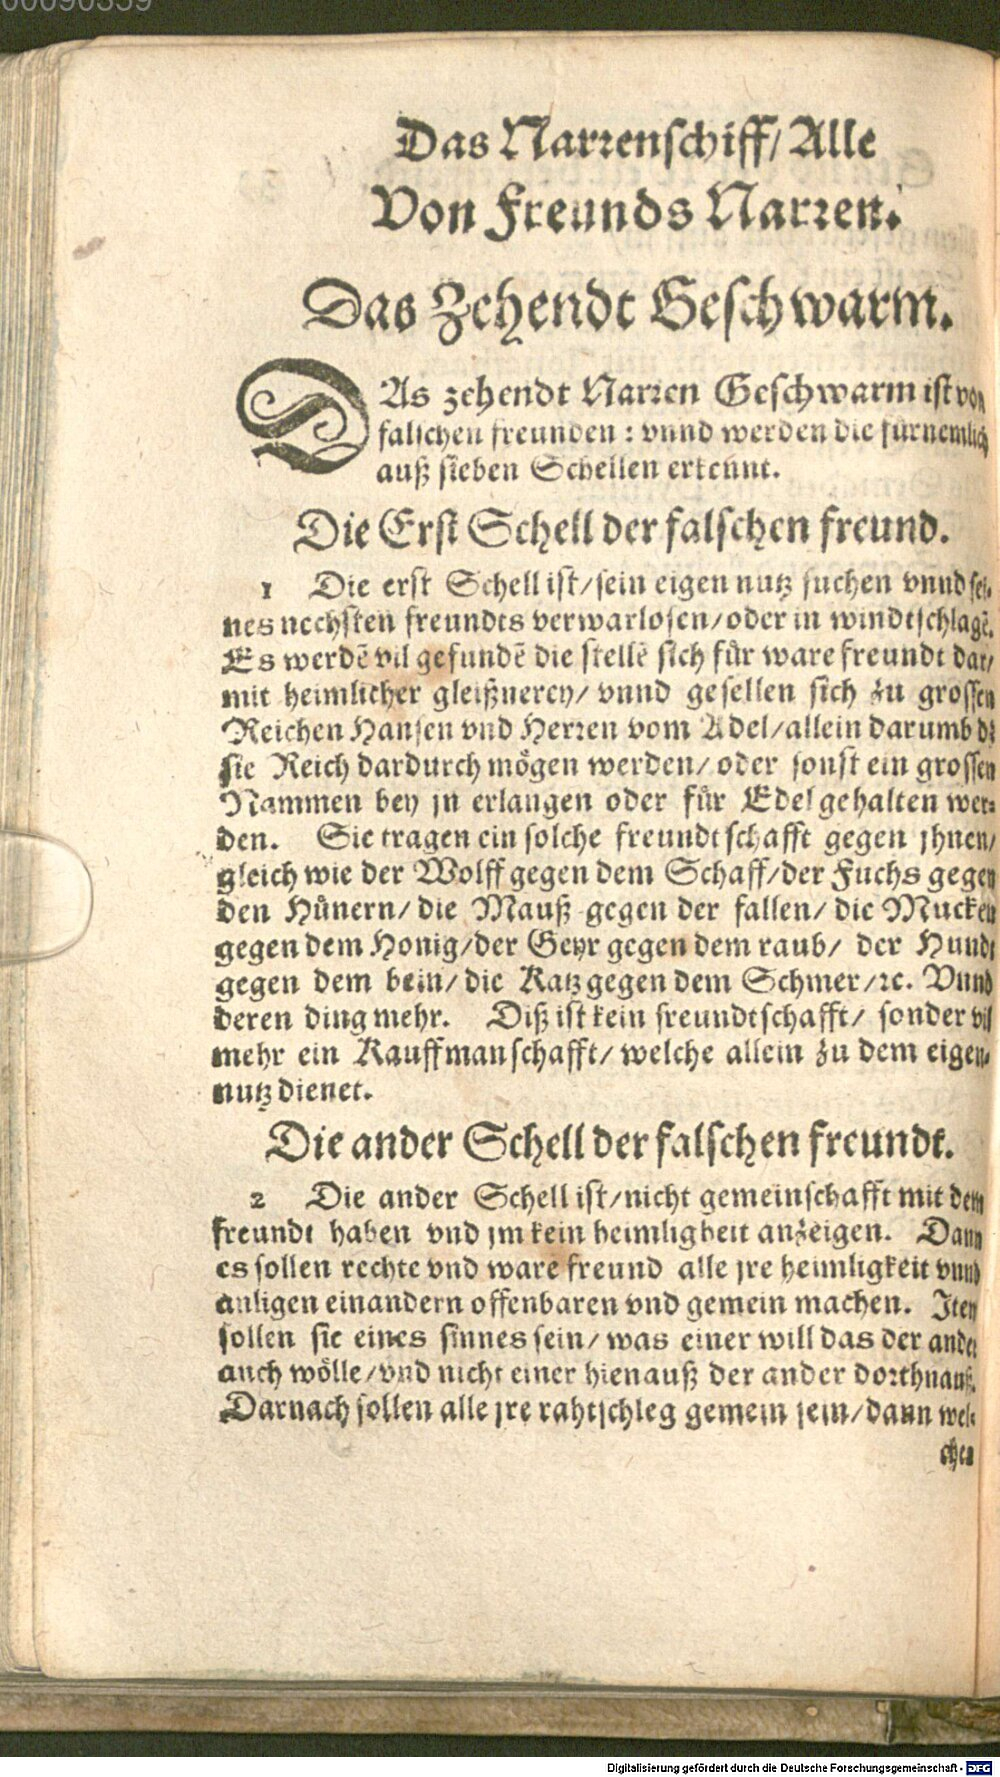 00090359
Das Narrenschiff/ Alle
Von Freunds Narren.
Das Zehendt Geschwarm.
DAs zehendt Narren Geschwarm ist von
falschen freunden : vnnd werden die fürnemlich
auß sieben Schellen erkennt.
Die Erst Schell der falschen freund.
1 Die erst Schell ist/sein eigen nutz suchen vnnd sei-
nes nechsten freundts verwarlosen/oder in windtschlagē.
Es werdē vil gefundē die stellē sich für ware freundt dar/
mit heimlicher gleißnerey/ vnnd gesellen sich zu grossen
Reichen Hansen vnd Herren vom Adel/allein darumb dz
sie Reich dardurch mögen werden/ oder sonst ein grossen
Nammen bey jn erlangen oder für Edel gehalten wer-
den. Sie tragen ein solche freundtschafft gegen jhnen/
gleich wie der Wolff gegen dem Schaff/der Fuchs gegen
den Hünern/ die Mauß gegen der fallen/ die Mucken
gegen dem Honig/der Geyr gegen dem raub/ der Hundt
gegen dem bein/ die Katz gegen dem Schmer/ꝛc. Vnnd
deren ding mehr. Diß ist kein freundtschafft/ sonder vil
mehr ein Kauffmanschafft/ welche allein zu dem eigen-
nutz dienet.
Die ander Schell der falschen freundt.
2 Die ander Schell ist/nicht gemeinschafft mit dem
freundt haben vnd jm kein heimligheit anzeigen. Dann
es sollen rechte vnd ware freund alle jre heimligkeit vnnd
anligen einandern offenbaren vnd gemein machen. Item
sollen sie eines sinnes sein/ was einer will das der ander
auch wölle/vnd nicht einer hienauß der ander dorthnauß.
Darnach sollen alle jre rahtschleg gemein sein/dann wel-
chen
Digitalisierung gefördert durch die Deutsche Forschungsgemeinschaft - DFG